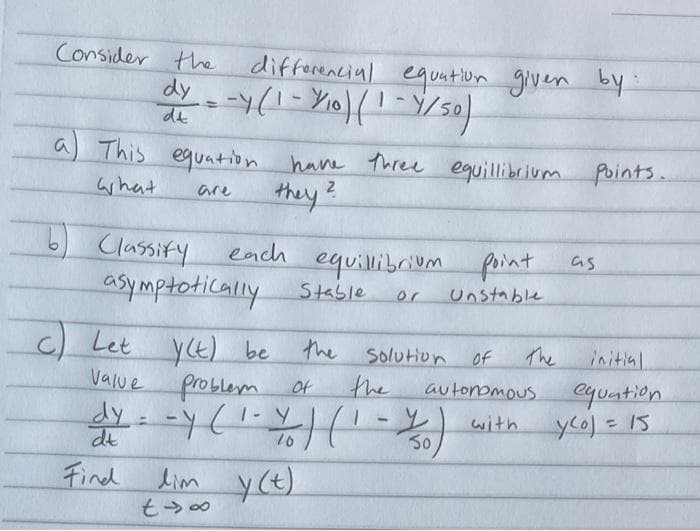 Consider the differencial equation given by:
dy/dt = -y(1 - y/10)(1 - y/50)
a) This equation have three equillibrium points.
what are they?
b) Classify each equillibrium point as
asymptotically stable or unstable
c) Let y(t) be the solution of the initial
value problem of the autonomous equation
dy/dt = -y(1 - y/10)(1 - y/50) with y(0) = 15
Find lim y(t)
t→∞